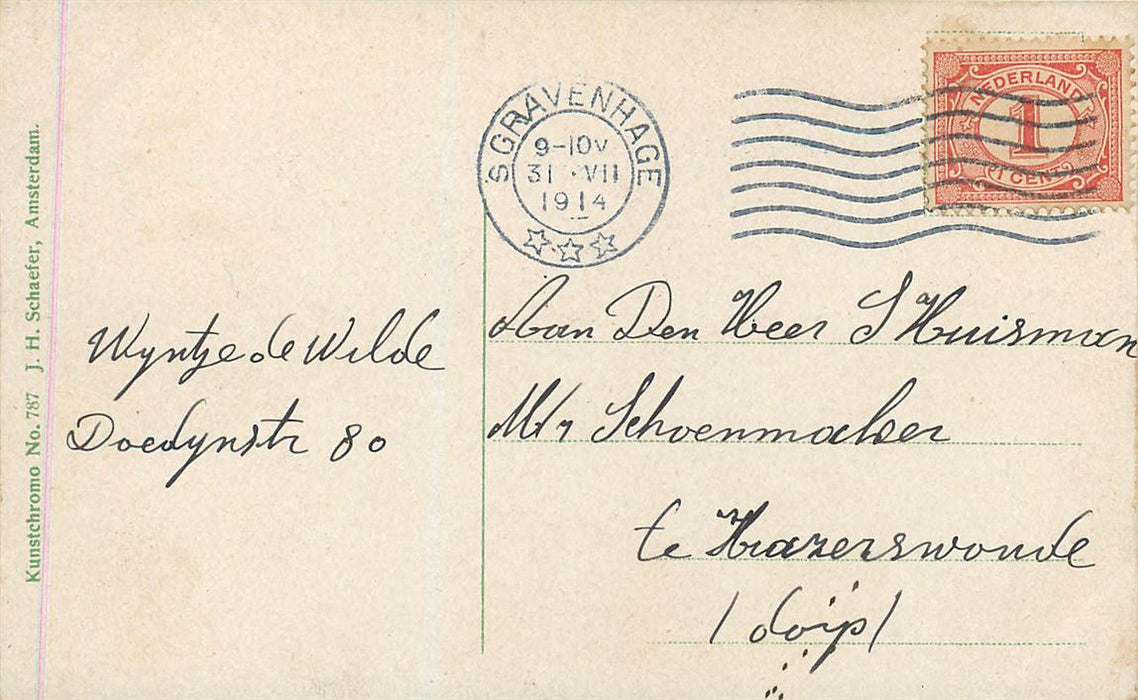 'S GRAVENHAGE
9-10V
31 · VII
1914
NEDERLAND
1
(1 CENT)
Kunstchromo No. 787 J. H. Schaefer, Amsterdam.
Wyntje de Wilde
Doedynstr 80
Aan Den Heer S Huisman
Mr Schoenmaker
te Hazerswoude
/ dorp /